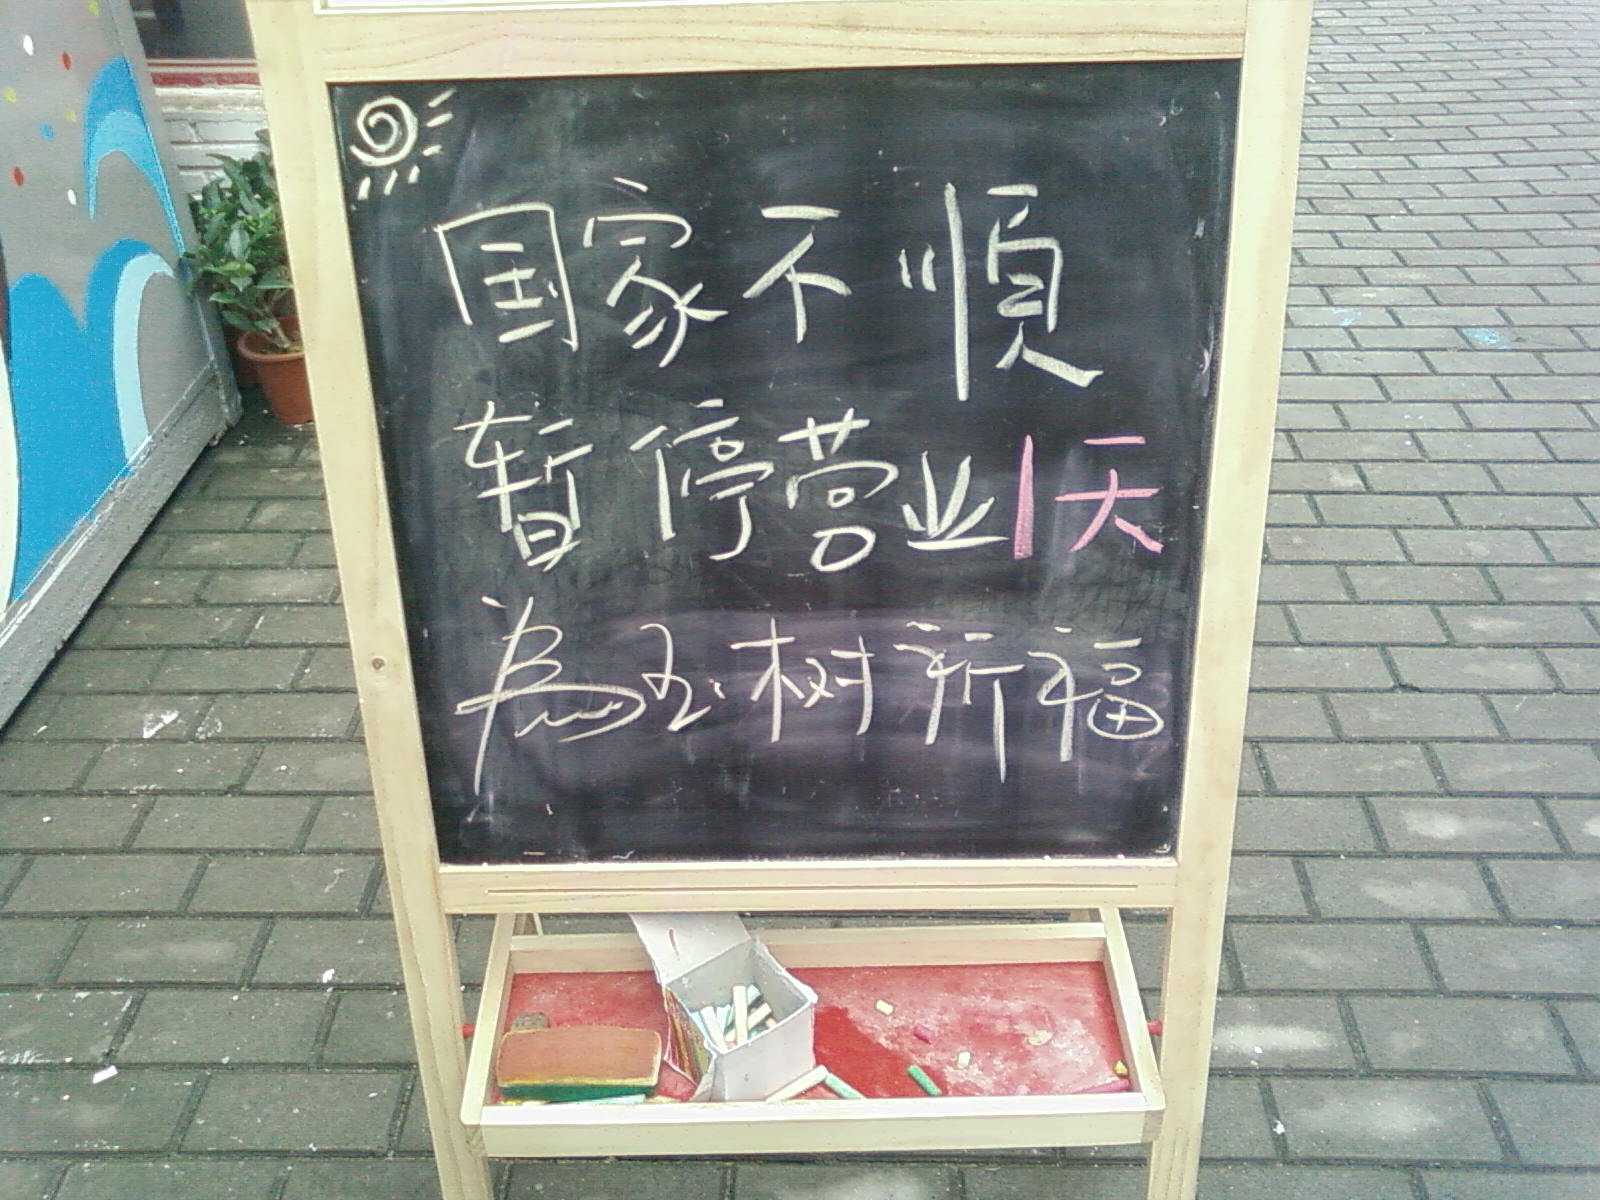 国家不順
暂停营业1天
為玉树祈福